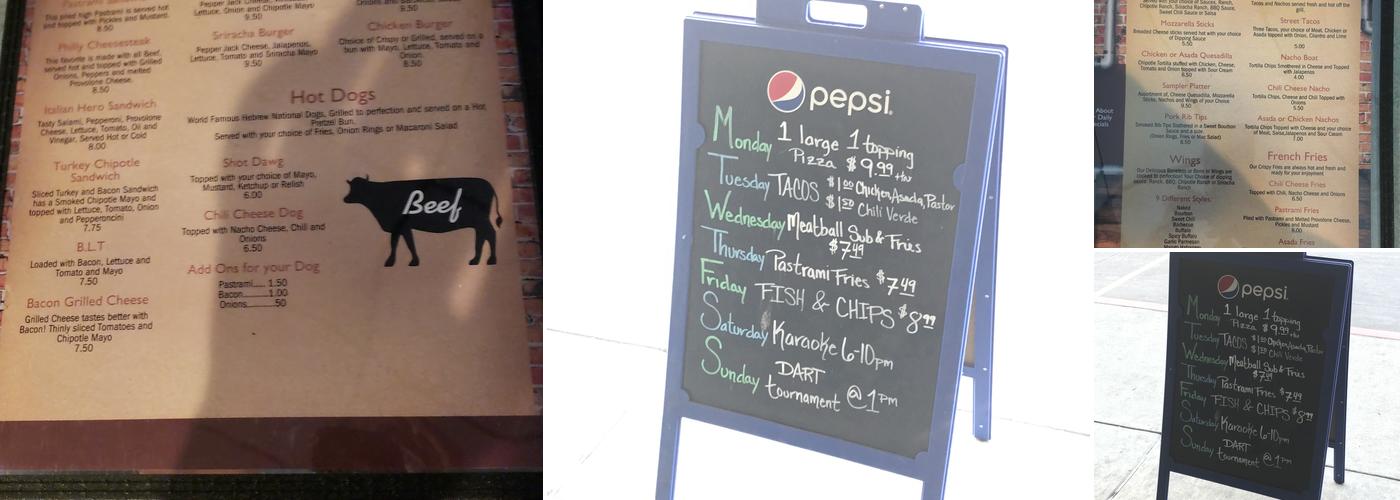 Pastrami
This piled high Pastrami is served hot
and topped with Pickles and Mustard.
9.50
Philly Cheesesteak
This favorite is made with all Beef,
served hot and topped with Grilled
Onions, Peppers and melted
Provolone Cheese.
8.50
Italian Hero Sandwich
Tasty Salami, Pepperoni, Provolone
Cheese, Lettuce, Tomato, Oil and
Vinegar, Served Hot or Cold
8.00
Turkey Chipotle
Sandwich
Sliced Turkey and Bacon Sandwich
has a Smoked Chipotle Mayo and
topped with Lettuce, Tomato, Onion
and Pepperoncini
7.75
B.L.T
Loaded with Bacon, Lettuce and
Tomato and Mayo
7.50
Bacon Grilled Cheese
Grilled Cheese tastes better with
Bacon! Thinly sliced Tomatoes and
Chipotle Mayo
7.50
Pepper Jack Cheese,
Lettuce, Onion and Chipotle Mayo
9.50
Sriracha Burger
Pepper Jack Cheese, Jalapenos,
Lettuce, Tomato and Sriracha Mayo
9.50
9.50
Chicken Burger
Choice of Crispy or Grilled, served on a
bun with Mayo, Lettuce, Tomato and
Onion.
8.50
Hot Dogs
World Famous Hebrew National Dogs, Grilled to perfection and served on a Hot,
Pretzel Bun.
Served with your choice of Fries, Onion Rings or Macaroni Salad
Shot Dawg
Topped with your choice of Mayo,
Mustard, Ketchup or Relish
6.00
Chili Cheese Dog
Topped with Nacho Cheese, Chili and
Onions
6.50
Add Ons for your Dog
Pastrami..... 1.50
Bacon..........1.00
Onions..........50
Beef
pepsi
Monday 1 large 1 topping
Pizza $9.99 +tax
Tuesday TACOS $1.00 Chicken, Asada, Pastor
$1.50 Chili Verde
Wednesday Meatball Sub & Fries
$7.49
Thursday Pastrami Fries $7.49
Friday FISH & CHIPS $8.99
Saturday Karaoke 6-10pm
Sunday DART
tournament @ 1pm
Chipotle Ranch, Sriracha Ranch, BBQ Sauce,
Sweet Chili Sauce or Salsa
Mozzarella Sticks
Breaded Cheese sticks served hot with your choice
of Dipping Sauce
5.50
Chicken or Asada Quesadilla
Chipotle Tortilla stuffed with Chicken, Cheese,
Tomato and Onion topped with Sour Cream
8.50
Sampler Platter
Assortment of, Cheese Quesadilla, Mozzarella
Sticks, Nachos and Wings of your choice
9.50
Pork Rib Tips
Smoked Rib Tips Slathered in a Sweet Bourbon
Sauce and a side
(Onion Rings, Fries or Mac Salad)
8.50
Wings
9 Different Styles
Naked
Bourbon
Sweet Chili
Barbecue
Buffalo
Spicy Buffalo
Garlic Parmesan
Tacos and Nachos served fresh and hot off the
grill.
Street Tacos
Three Tacos, your choice of Meat, Chicken or
Asada topped with Onion, Cilantro and Lime
5.00
Nacho Boat
Tortilla Chips Smothered in Cheese and Topped
with Jalapenos
4.00
Chili Cheese Nacho
Tortilla Chips, Cheese and Chili Topped with
Onions
5.50
Asada or Chicken Nachos
Tortilla Chips Topped with Cheese and your choice
of Meat, Salsa, Jalapenos and Sour Cream
7.00
French Fries
Our Crispy Fries are always hot and fresh and
ready for your enjoyment
Chili Cheese Fries
Topped with Chili, Nacho Cheese and Onions
6.50
Pastrami Fries
Piled with Pastrami and Melted Provolone Cheese,
Pickles and Mustard
8.00
Asada Fries
About
Daily
pepsi
Monday 1 large 1 topping
Pizza $9.99 +tax
Tuesday TACOS $1.00 Chicken, Asada, Pastor
$1.50 Chili Verde
Wednesday Meatball Sub & Fries
$7.49
Thursday Pastrami Fries $7.49
Friday FISH & CHIPS $8.99
Saturday Karaoke 6-10pm
Sunday DART
tournament @ 1pm